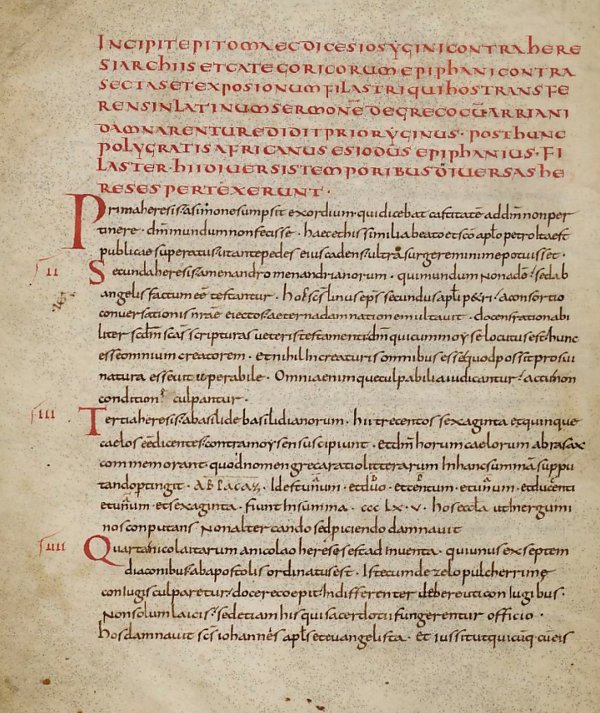 INCIPIT EPITOMA EC DICESIOS YGINI CONTRA HERE
SIARCHIIS ET CATEGORICORUM EPIPHANI CONTRA
SECTAS ET EXPOSIONUM FILASTRI QUI HOS TRANSFE
RENS IN LATINUM SERMONĒ DE GRECO CŪ ARRIANI
DAMNARENTUR EDIDIT PRIOR YGINUS · POST HUNC
POLYGRATIS AFRICANUS ESIODUS EPIPHANIUS · FI
LASTER · HII DIVERSIS TEMPORIBUS DIVERSAS HE
RESES PERTEXERUNT ·
Prima heresis a simone sumpsit exordium · qui dicebat castitatē ad dm̄ non per
tinere · dm̄ mundum non fecisse · haec et his similia beato et sc̄o apl̄o petro ita est
publicae superatus ut ante pedes eius cadens ultra surgere minime potuisset ·
II Secunda heresis a menandro menandrianorum · qui mundum non a dō · sed ab
angelis factum eē testantur · hos sc̄s linus eps̄ secundus apl̄i petri · a consortio
conversationis nrae eiectos aeterna damnatione multavit · docens rationabi
liter scdm̄ scas scripturas veteris testamenti dm̄ qui cum moyse locutus est hunc
esse omnium creatorem · et nihil in creaturis omnibus esse quod possit pro sui
natura esse vituperabile · Omnia enim que culpabilia iudicantur · acti non
condition culpantur ·
III Tertia heresis a basilide basilidianorum · hii trecentos sexaginta et quinque
caelos eē dicentes contra moysen suscipiunt · et dm̄ horum caelorum abraxax
commemorant · quod nomen greca ratio litterarum In hanc summā suppu
tando ptingit · Idest unum · et duo · et centum · et unum · et ducenti
et unum · et sexaginta · fiunt In summa · ccc Lx · v · hos ecclā ut Inergumi
nos conputans Non altercando sed spiciendo damnavit
IIII Quarta nicolaitarum a nicolao heresis est ad inventa · qui unus ex septem
diaconibus ab apostolis ordinatus est · Iste cum de zelo pulcherrime
coniugis culparetur docere coepit Indifferenter debere uti coniugibus ·
Non solum laicis · sed etiam his qui sacerdotii fungerentur officio ·
hos damnavit sc̄s iohannes apl̄s et euangelista · et iussit ut quicūq cū eis